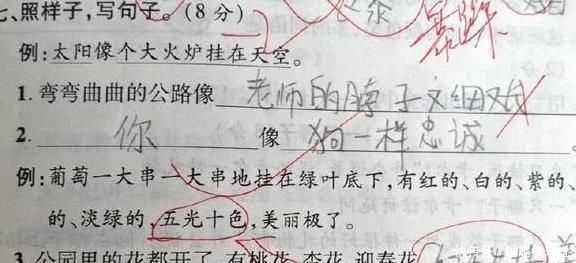 七、照样子,写句子。(8分)
例:太阳像个大火炉挂在天空。
1. 弯弯曲曲的公路像 老师的脖子又细又长
2. 你 像 狗一样忠诚 。
例:葡萄一大串一大串地挂在绿叶底下,有红的、白的、紫的、
的、淡绿的,五光十色,美丽极了。
3. 公园里的花都开了,有桃花、杏花、迎春花